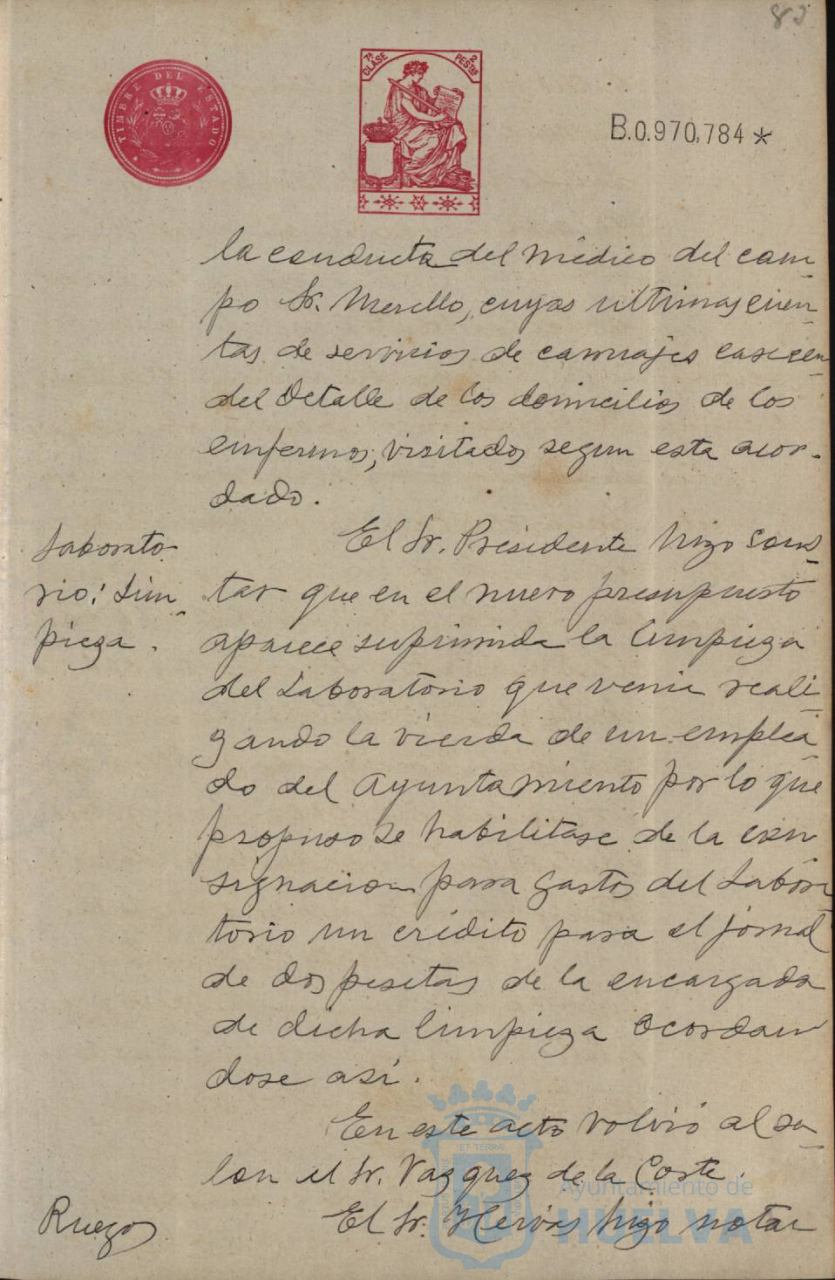 83
TIMBRE DEL ESTADO
7ª CLASE
2 PESETAS
B.0.970,784 *
la conducta del médico del cam-
po Sr. Morello, cuyas ultimas cuen-
tas de servicios de carruajes carecen
del detalle de los domicilios de los
enfermos, visitados segun esta acor-
dado.
Laborato-
rio: Lim-
pieza.
El Sr. Presidente hizo cons-
tar que en el nuevo presupuesto
aparece suprimida la limpieza
del Laboratorio que venia reali-
zando la viuda de un emplea-
do del Ayuntamiento por lo que
propuso se habilitase de la con-
signacion para gastos del Labora-
torio un crédito para el jornal
de dos pesetas de la encargada
de dicha limpieza acordan-
dose asi.
En este acto volvió al sa-
lon el Sr. Vazquez de la Corte.
Ruegos
El Sr. Hervás hizo notar
Ayuntamiento de
HUELVA